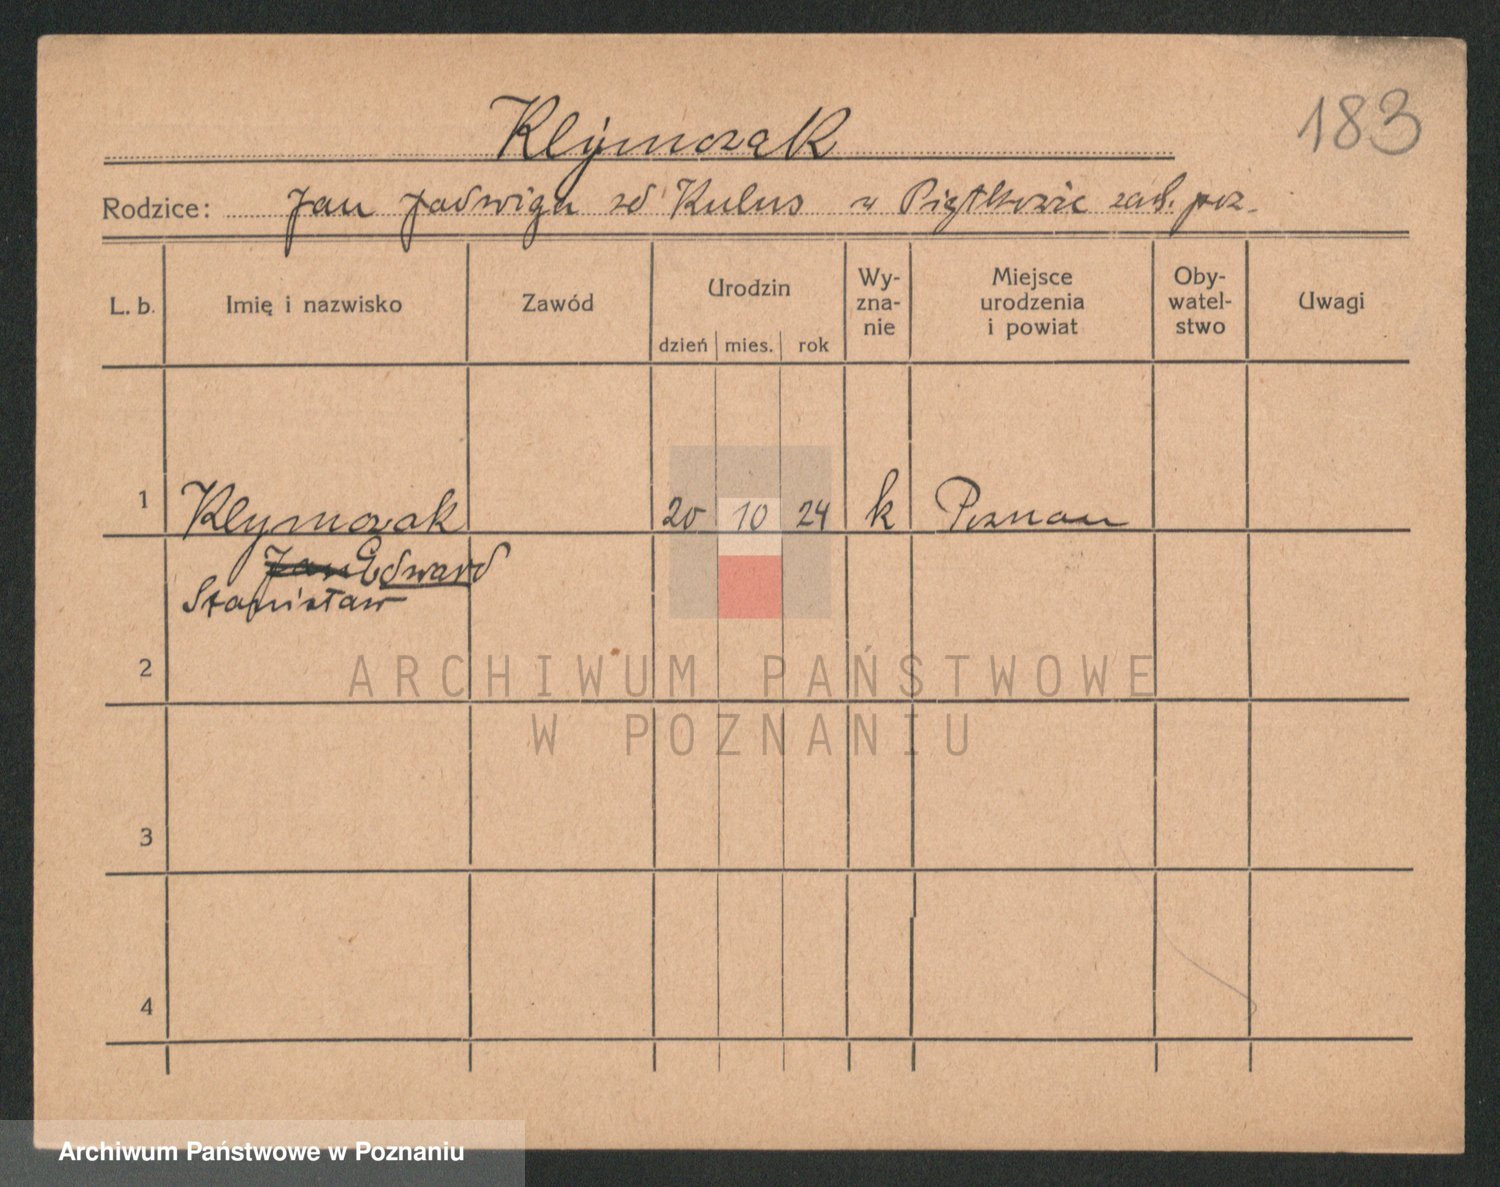 183
Klymczak
Rodzice: Jan Jadwiga zd Kulus w Piątkowie zach. poz.
L. b. Imię i nazwisko Zawód Urodzin dzień mies. rok Wy-zna-nie Miejsce urodzenia i powiat Oby-watel-stwo Uwagi
1 Klymczak 20 10 24 k Poznan
Jan Edward
Stanisław
2
ARCHIWUM PAŃSTWOWE
W POZNANIU
3
4
Archiwum Państwowe w Poznaniu